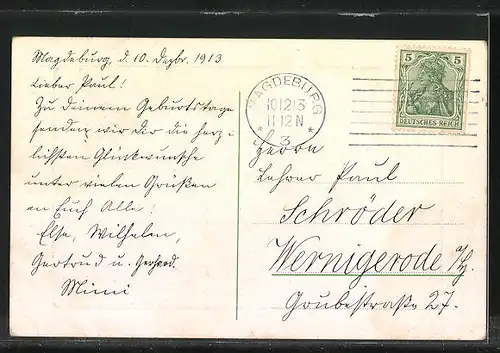 Magdeburg, d. 10. Dezbr. 1913
Lieber Paul!
Zu deinem Geburtstage
senden wir dir die herz-
lichsten Glückwünsche
unter vielen Grüßen
an Euch Alle!
Else, Wilhelm,
Gertrud u. Gerhard.
Mimi
MAGDEBURG
10.12.13
11-12N
* 3 *
5 5
DEUTSCHES REICH
Herrn
Lehrer Paul
Schröder
Wernigerode a/H.
Grubestraße 27.